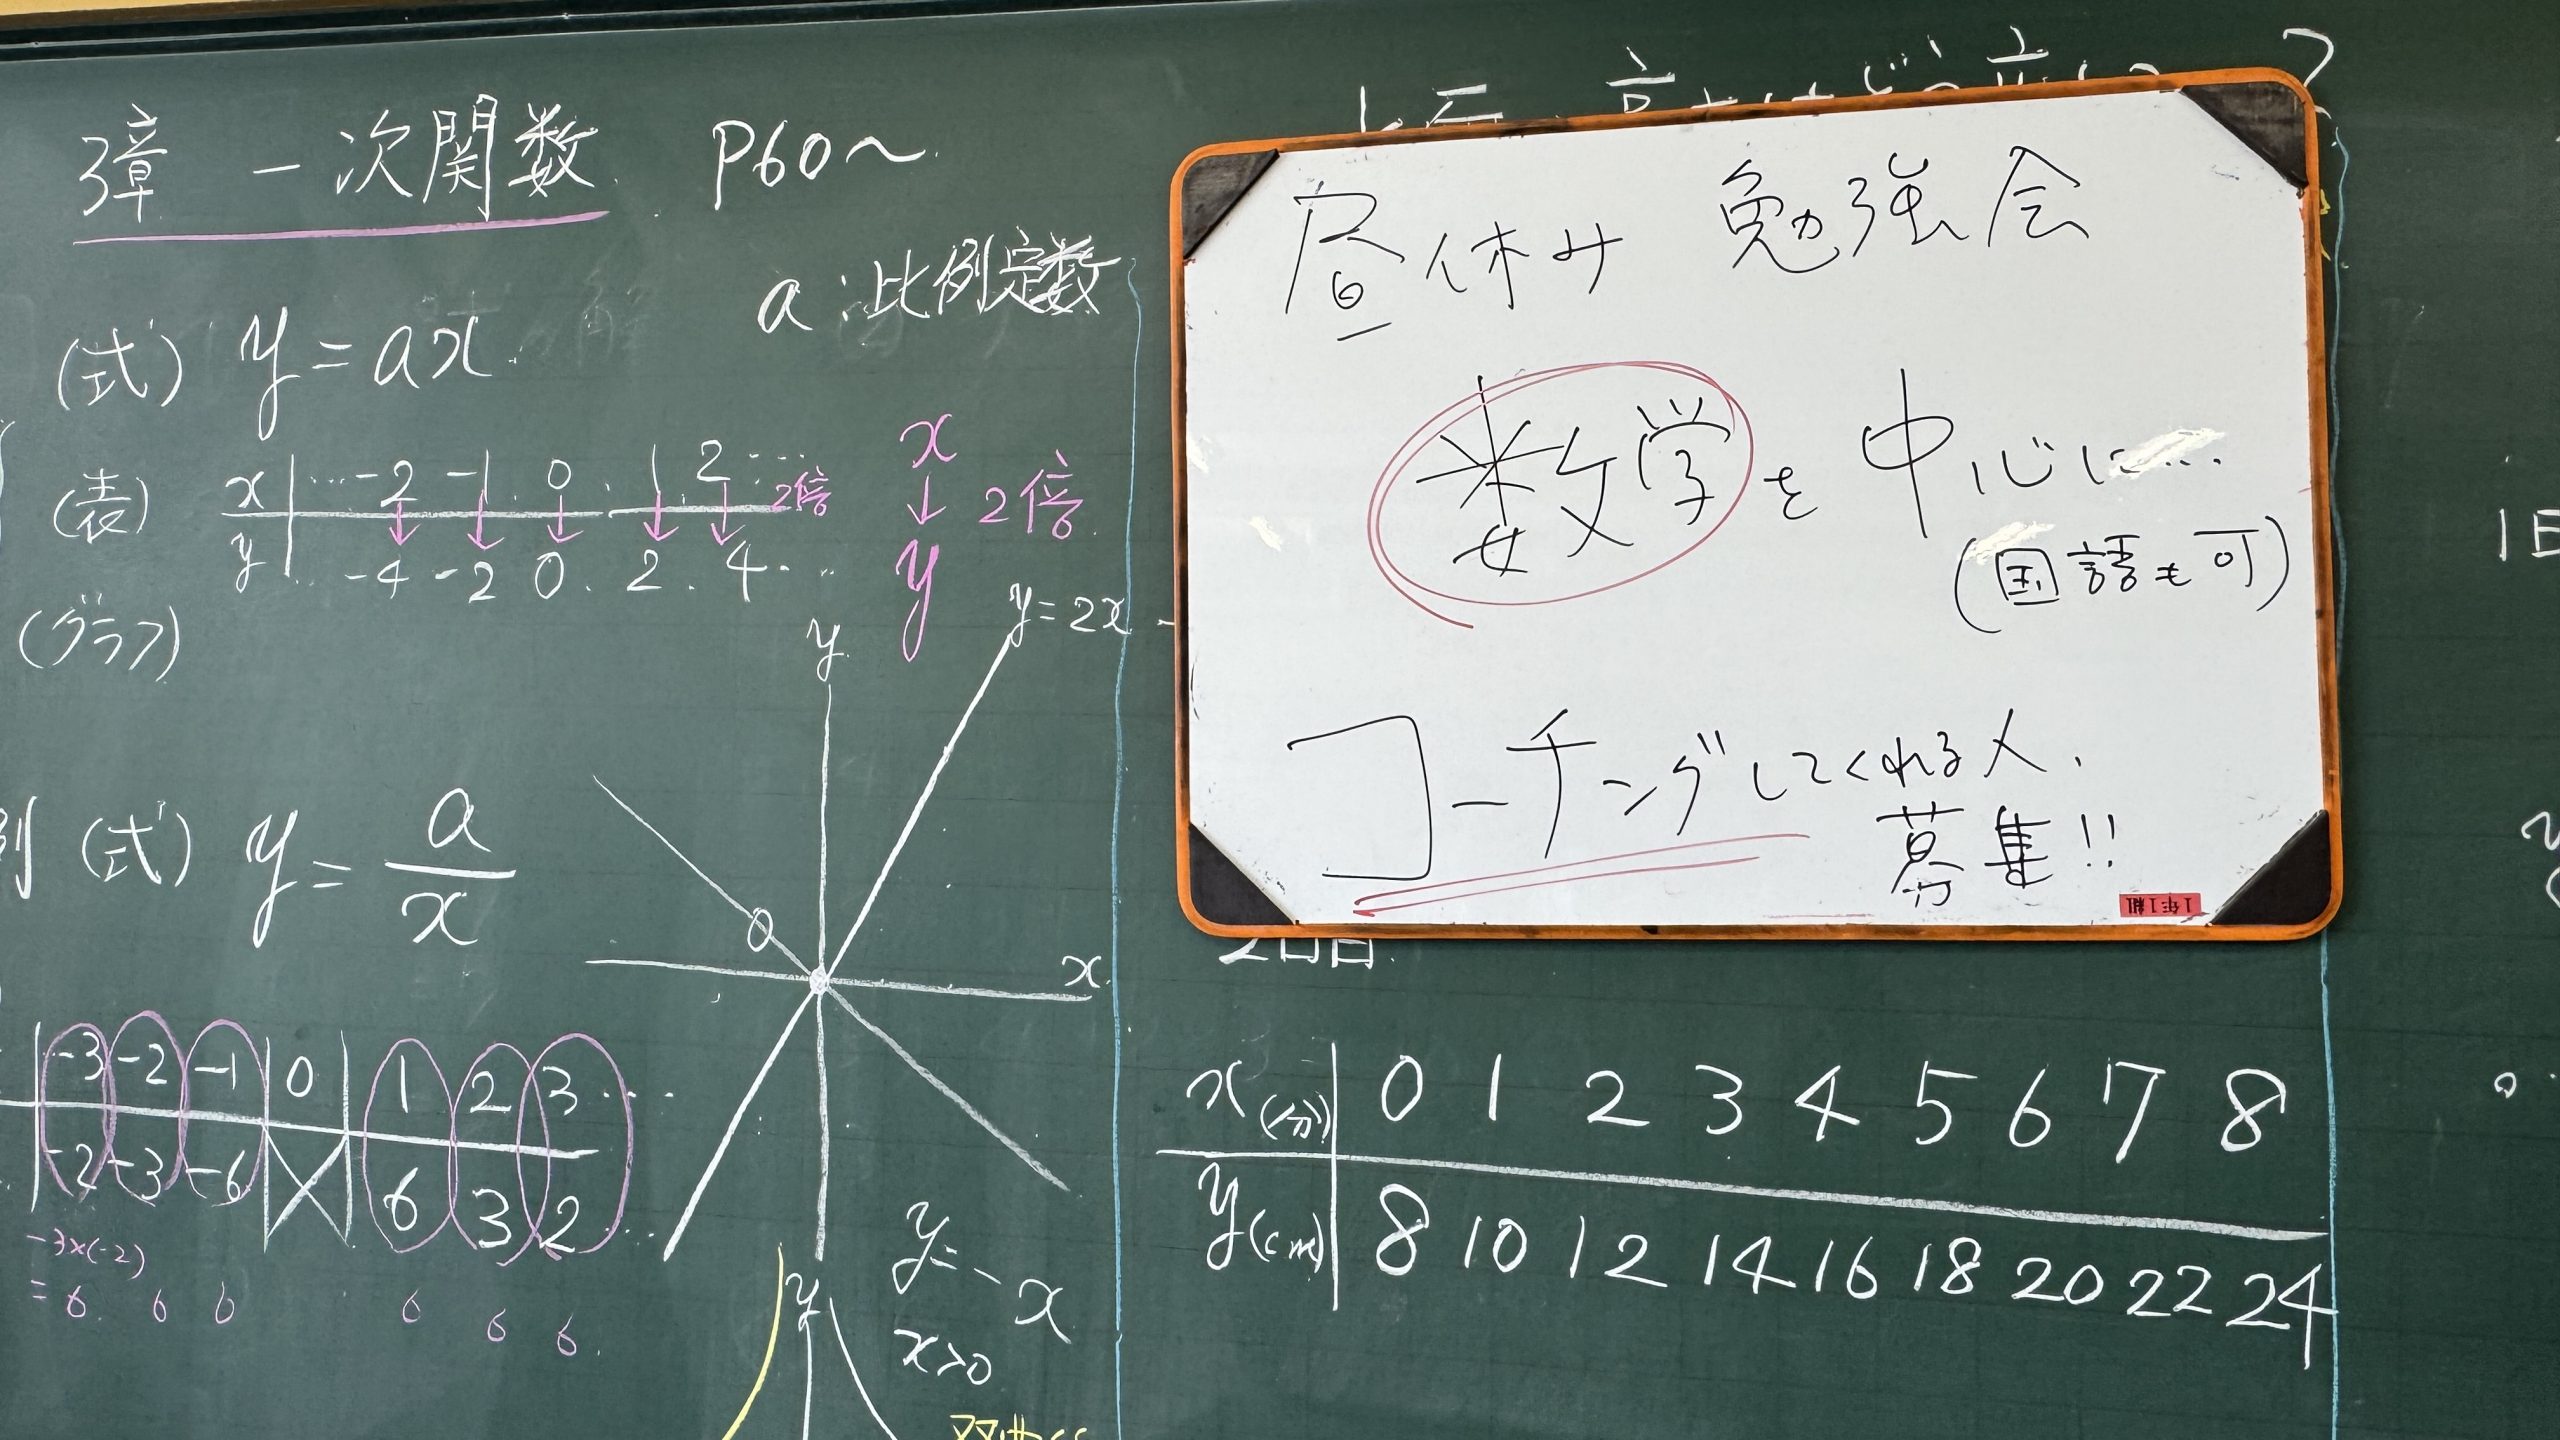 3章 一次関数 P60~
a:比例定数
(式) y=ax
(表) x …-2 -1 0 1 2 … 2倍
y … -4 -2 0 2 4 …
x ↓ y 2倍
(グラフ)
y=2x
y
x
0
例 (式) y=a/x
-3 -2 -1 0 1 2 3 …
-2 -3 -6 6 3 2 …
-3×(-2)
=6 6 6 6 6 6
y=-x
x>0
y
昼休み 勉強会
数学を中心に…
(国語も可)
コーチングしてくれる人、
募集!!
1年1組
2回目
x(分) 0 1 2 3 4 5 6 7 8
y(cm) 8 10 12 14 16 18 20 22 24